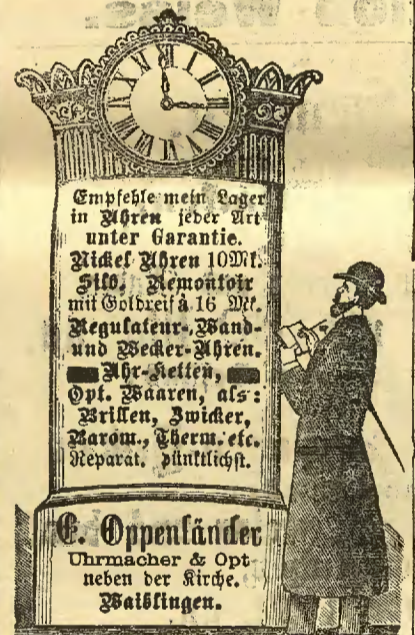 Empfehle mein Lager
in Uhren jeder Art
unter Garantie.
Nickel Uhren 10 Mk.
Silb. Remontoir
mit Goldreif à 16 Mk.
Regulateur-, Wand-
und Wecker-Uhren.
Uhr-Ketten,
Opt. Waaren, als:
Brillen, Zwicker,
Barom., Therm. etc.
Reparat. pünktlichst.
E. Oppenländer
Uhrmacher & Opt
neben der Kirche.
Waiblingen.